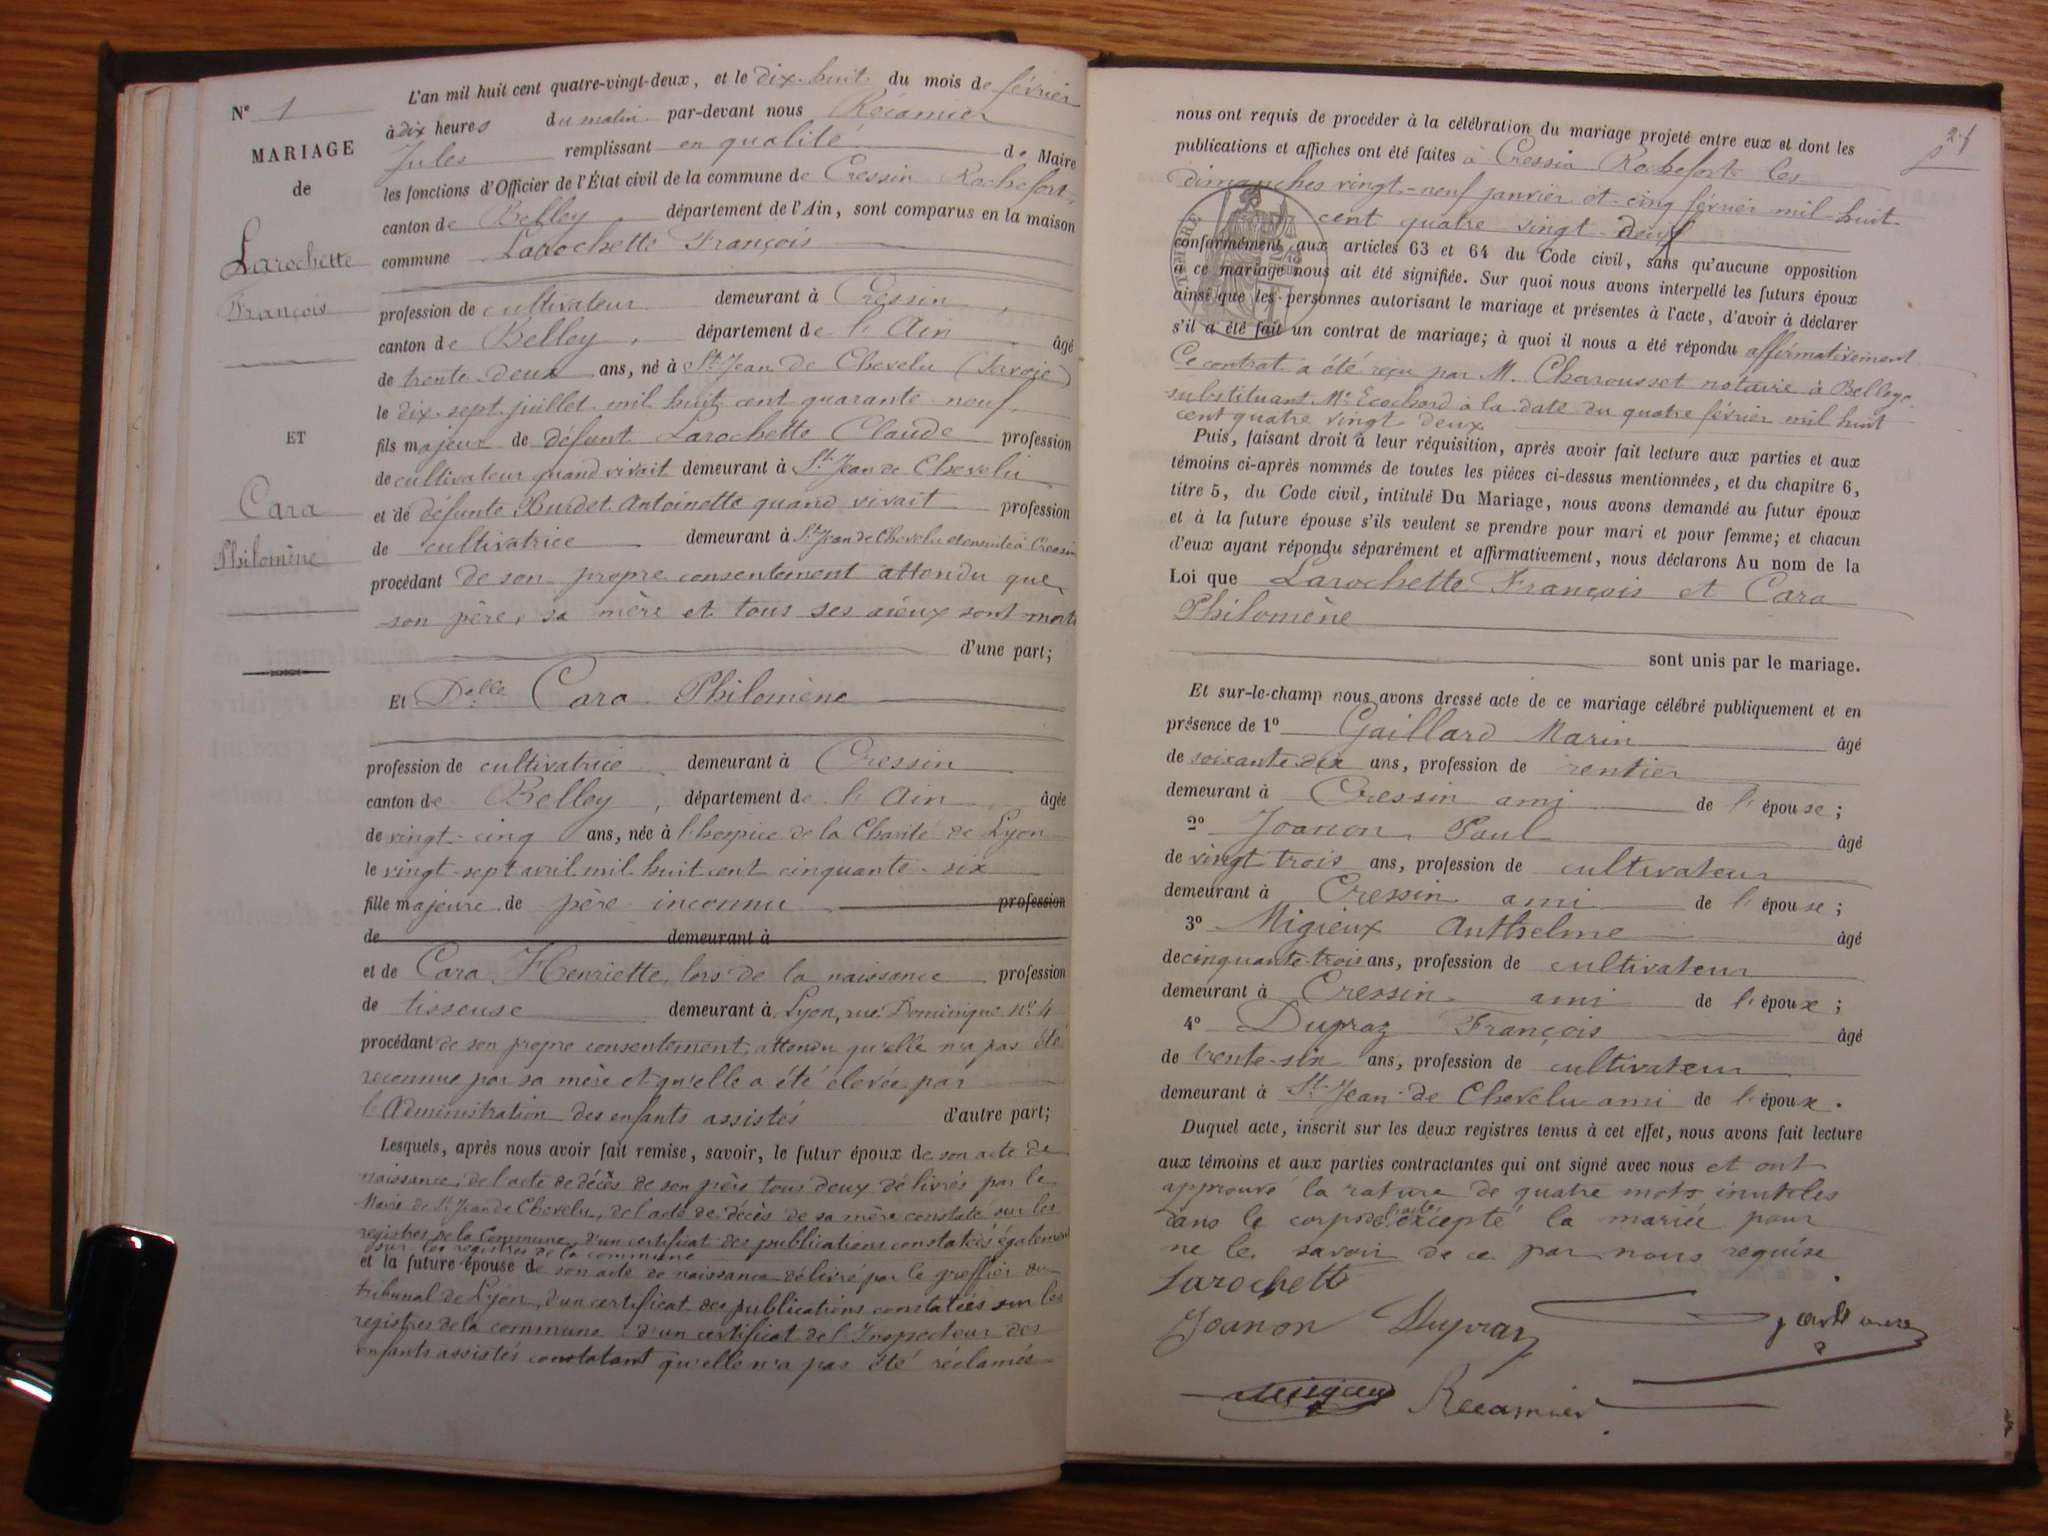 N° 1
MARIAGE
de
Larochette
François
ET
Cara
Philomène
L'an mil huit cent quatre-vingt-deux, et le dix-huit du mois de février
à dix heures du matin par-devant nous Récamier
Jules remplissant en qualité de Maire
les fonctions d'Officier de l'État civil de la commune de Cressin Rochefort,
canton de Belley département de l'Ain, sont comparus en la maison
commune Larochette François
profession de cultivateur demeurant à Cressin
canton de Belley, département de l'Ain, âgé
de trente-deux ans, né à St Jean de Chevelu (Savoie)
le dix-sept juillet mil huit cent quarante-neuf,
fils majeur de défunt Larochette Claude profession
de cultivateur quand vivait demeurant à St Jean de Chevelu
et de défunte Burdet Antoinette quand vivait profession
de cultivatrice demeurant à St Jean de Chevelu et ensuite à Cressin
procédant de son propre consentement attendu que
son père, sa mère et tous ses aïeux sont morts
d'une part;
Et Delle Cara Philomène
profession de cultivatrice demeurant à Cressin
canton de Belley, département de l'Ain, âgée
de vingt-cinq ans, née à l'hospice de la Charité de Lyon
le vingt-sept avril mil huit cent cinquante-six
fille majeure de père inconnu profession
de demeurant à
et de Cara Henriette, lors de la naissance profession
de tisseuse demeurant à Lyon, rue Dominique n° 4
procédant de son propre consentement, attendu qu'elle n'a pas été
reconnue par sa mère et qu'elle a été élevée par
l'Administration des enfants assistés d'autre part;
Lesquels, après nous avoir fait remise, savoir, le futur époux de son acte de
naissance, de l'acte de décès de son père tous deux délivrés par le
Maire de St Jean de Chevelu, de l'acte de décès de sa mère constaté sur les
registres de la Commune, d'un certificat des publications constatées également
sur les registres de la commune
et la future épouse de son acte de naissance délivré par le greffier du
tribunal de Lyon, d'un certificat des publications constatées sur les
registres de la commune d'un certificat de l'Inspecteur des
enfants assistés constatant qu'elle n'a pas été réclamée
nous ont requis de procéder à la célébration du mariage projeté entre eux et dont les
publications et affiches ont été faites à Cressin Rochefort les
dimanches vingt-neuf janvier et cinq février mil-huit-
cent quatre vingt-deux
conformément aux articles 63 et 64 du Code civil, sans qu'aucune opposition
à ce mariage nous ait été signifiée. Sur quoi nous avons interpellé les futurs époux
ainsi que les personnes autorisant le mariage et présentes à l'acte, d'avoir à déclarer
s'il a été fait un contrat de mariage; à quoi il nous a été répondu affirmativement
Ce contrat a été reçu par M. Charousset notaire à Belley
substituant Me Ecochard à la date du quatre février mil huit
cent quatre vingt deux
Puis, faisant droit à leur réquisition, après avoir fait lecture aux parties et aux
témoins ci-après nommés de toutes les pièces ci-dessus mentionnées, et du chapitre 6,
titre 5, du Code civil, intitulé Du Mariage, nous avons demandé au futur époux
et à la future épouse s'ils veulent se prendre pour mari et pour femme; et chacun
d'eux ayant répondu séparément et affirmativement, nous déclarons Au nom de la
Loi que Larochette François et Cara
Philomène
sont unis par le mariage.
Et sur-le-champ nous avons dressé acte de ce mariage célébré publiquement et en
présence de 1° Gaillard Marin âgé
de soixante-dix ans, profession de rentier
demeurant à Cressin ami de l'épouse;
2° Joanon Paul âgé
de vingt trois ans, profession de cultivateur
demeurant à Cressin ami de l'épouse;
3° Migieux Anthelme âgé
de cinquante-trois ans, profession de cultivateur
demeurant à Cressin ami de l'époux;
4° Dupraz François âgé
de trente-six ans, profession de cultivateur
demeurant à St Jean de Chevelu ami de l'époux.
Duquel acte, inscrit sur les deux registres tenus à cet effet, nous avons fait lecture
aux témoins et aux parties contractantes qui ont signé avec nous et ont
approuvé la rature de quatre mots inutiles
dans le corps de l'acte excepté la mariée pour
ne le savoir de ce par nous requise
Larochette
Joanon Dupraz
Récamier